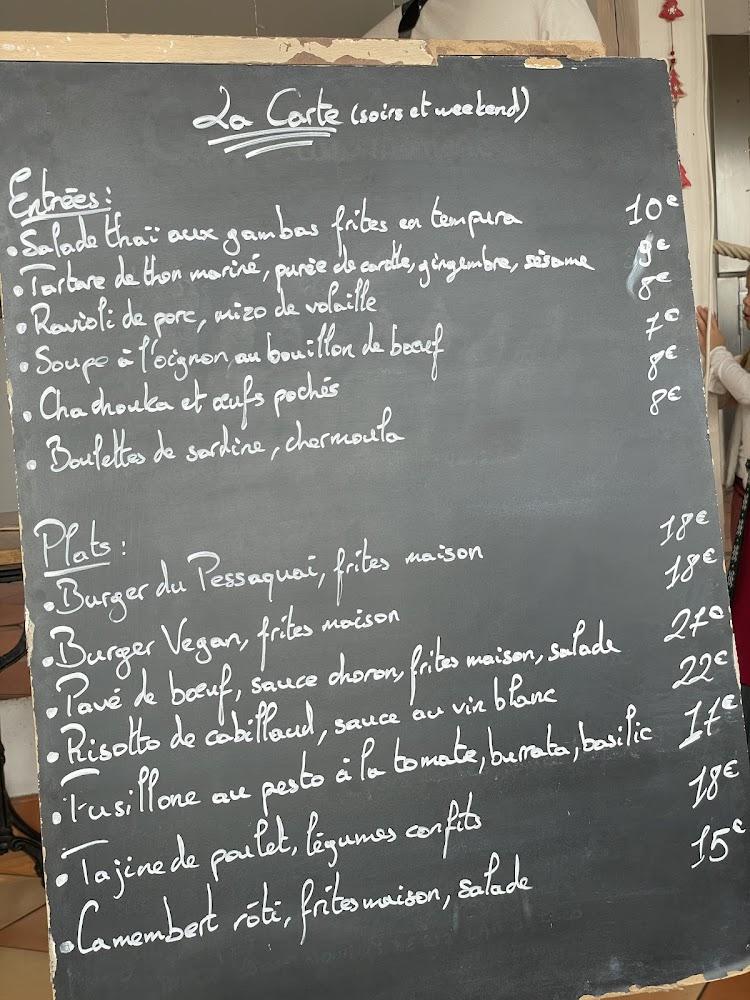 La Carte (soirs et weekend)
Entrées :
• Salade thaï aux gambas frites en tempura 10€
• Tartare de thon mariné, purée de carotte, gingembre, sésame 9€
• Ravioli de porc, mizo de volaille 8€
• Soupe à l'oignon au bouillon de bœuf 7€
• Chachouka et œufs pochés 8€
• Boulettes de sardine, chermoula 8€
Plats :
• Burger du Pessaquai, frites maison 18€
• Burger Vegan, frites maison 18€
• Pavé de bœuf, sauce choron, frites maison, salade 27€
• Risotto de cabillaud, sauce au vin blanc 22€
• Fusillone au pesto à la tomate, burrata, basilic 17€
• Tajine de poulet, légumes confits 18€
• Camembert rôti, frites maison, salade 15€